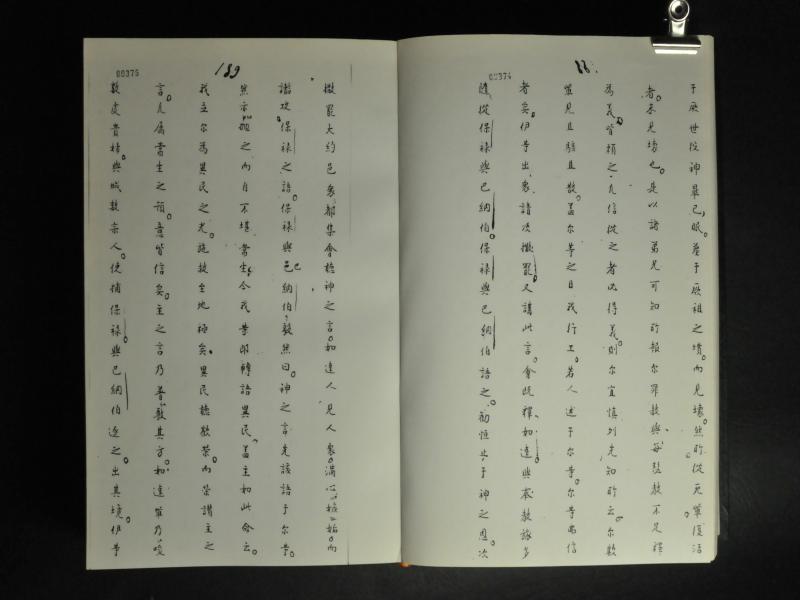 00374
于厥世役神畢已眠。葬于厥祖之墳。而見壞。然所從死軍復活
者。未見壞也。是以諸弟兄可知所報尔罪赦與每
為義。皆賴之。凡信從之者必得義。則尔宜慎列先知所云。尔數
輩見且駭且散。盖尔等之日我行工。若人述于尔等。尔等弗信
者矣。伊等出。衆請次撒罷。又講此言。會既釋。如達與
隨從保祿與巴納伯。保祿與巴納伯語之。勸恒于神之恩。次
00375
189
撒罷大約邑衆都集會聽神之言。和達人見人衆。滿心而
保祿之語。保祿與巴納伯毅然曰。神之言先該語于尔等。
然尔之而自不堪常生。今我等即轉語異民。盖主如此命云。
我立尔為異民之光。施救至地極矣。異民聽歡榮。而榮讚主之
言。凡屬常生之預意皆信矣。主之言乃普其方。和達軍乃唆
數虔貴婦。與城數宗人。使捕保祿與巴納伯。逐之出其境。伊等